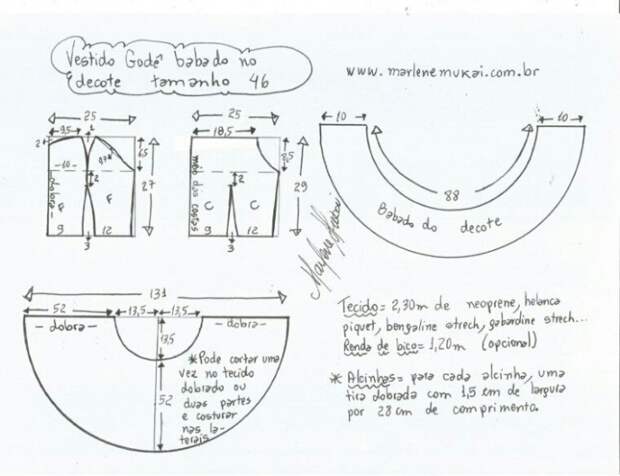 Vestido Godê babado no
decote tamanho 46
www.marlenemukai.com.br
25
9,5
1
2
10
6,5
27
2
dobra
F
F
9
12
3
25
18,5
8,5
29
meio das costas
2
C
C
9
12
3
10
10
88
Babado do decote
Marlene Mukai
131
52
13,5
13,5
- dobra -
- dobra -
13,5
52
* Pode cortar uma
vez no tecido
dobrado ou
duas partes
e costurar
nas la-
terais
Tecido = 2,30m de neoprene, helanca
piquet, bengaline strech, gabardine strech...
Renda de bico = 1,20m (opcional)
* Alcinhas = para cada alcinha, uma
tira dobrada com 1,5 cm de largura
por 28 cm de comprimento.